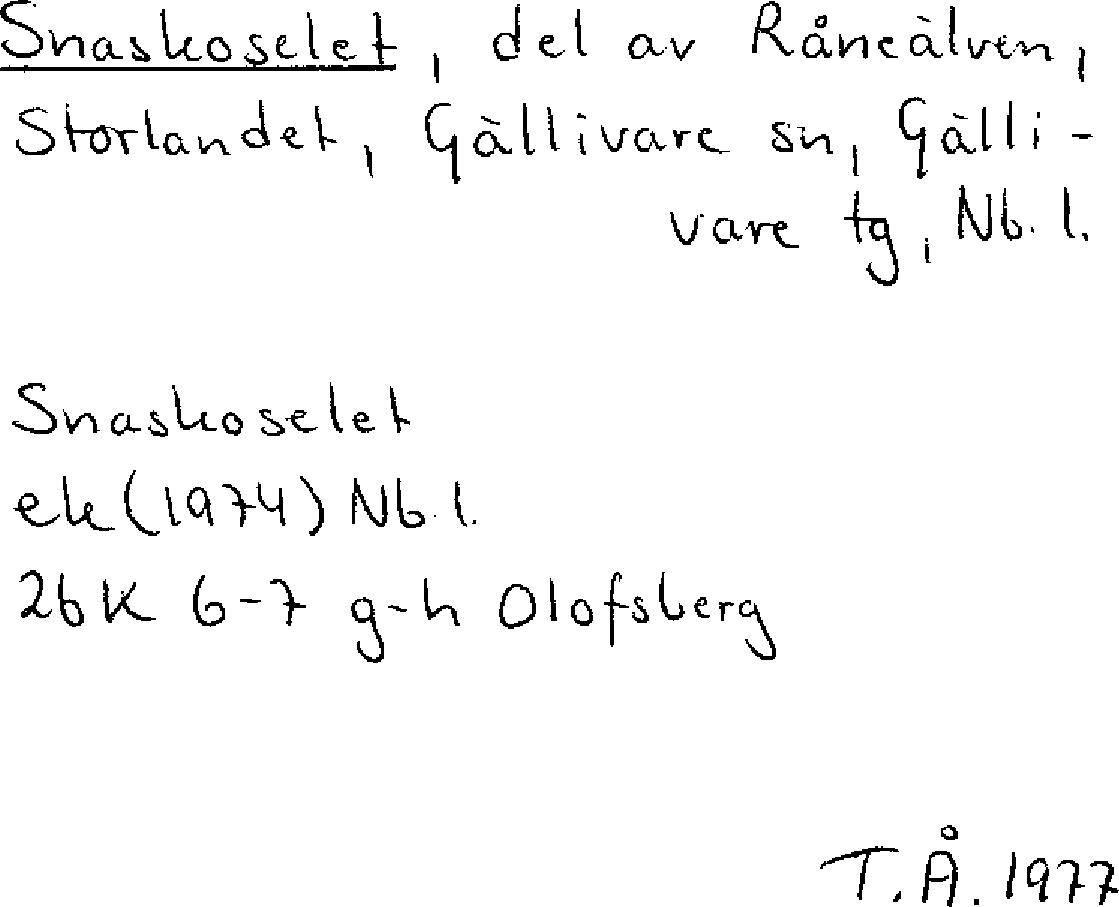 Snaskoselet, del av Råneälven,
Storlandet, Gällivare sn, Gälli-
vare tg, Nb. l.
Snaskoselet
ek (1974) Nb. l.
26K 6-7 g-h Olofsberg
T.Å. 1977